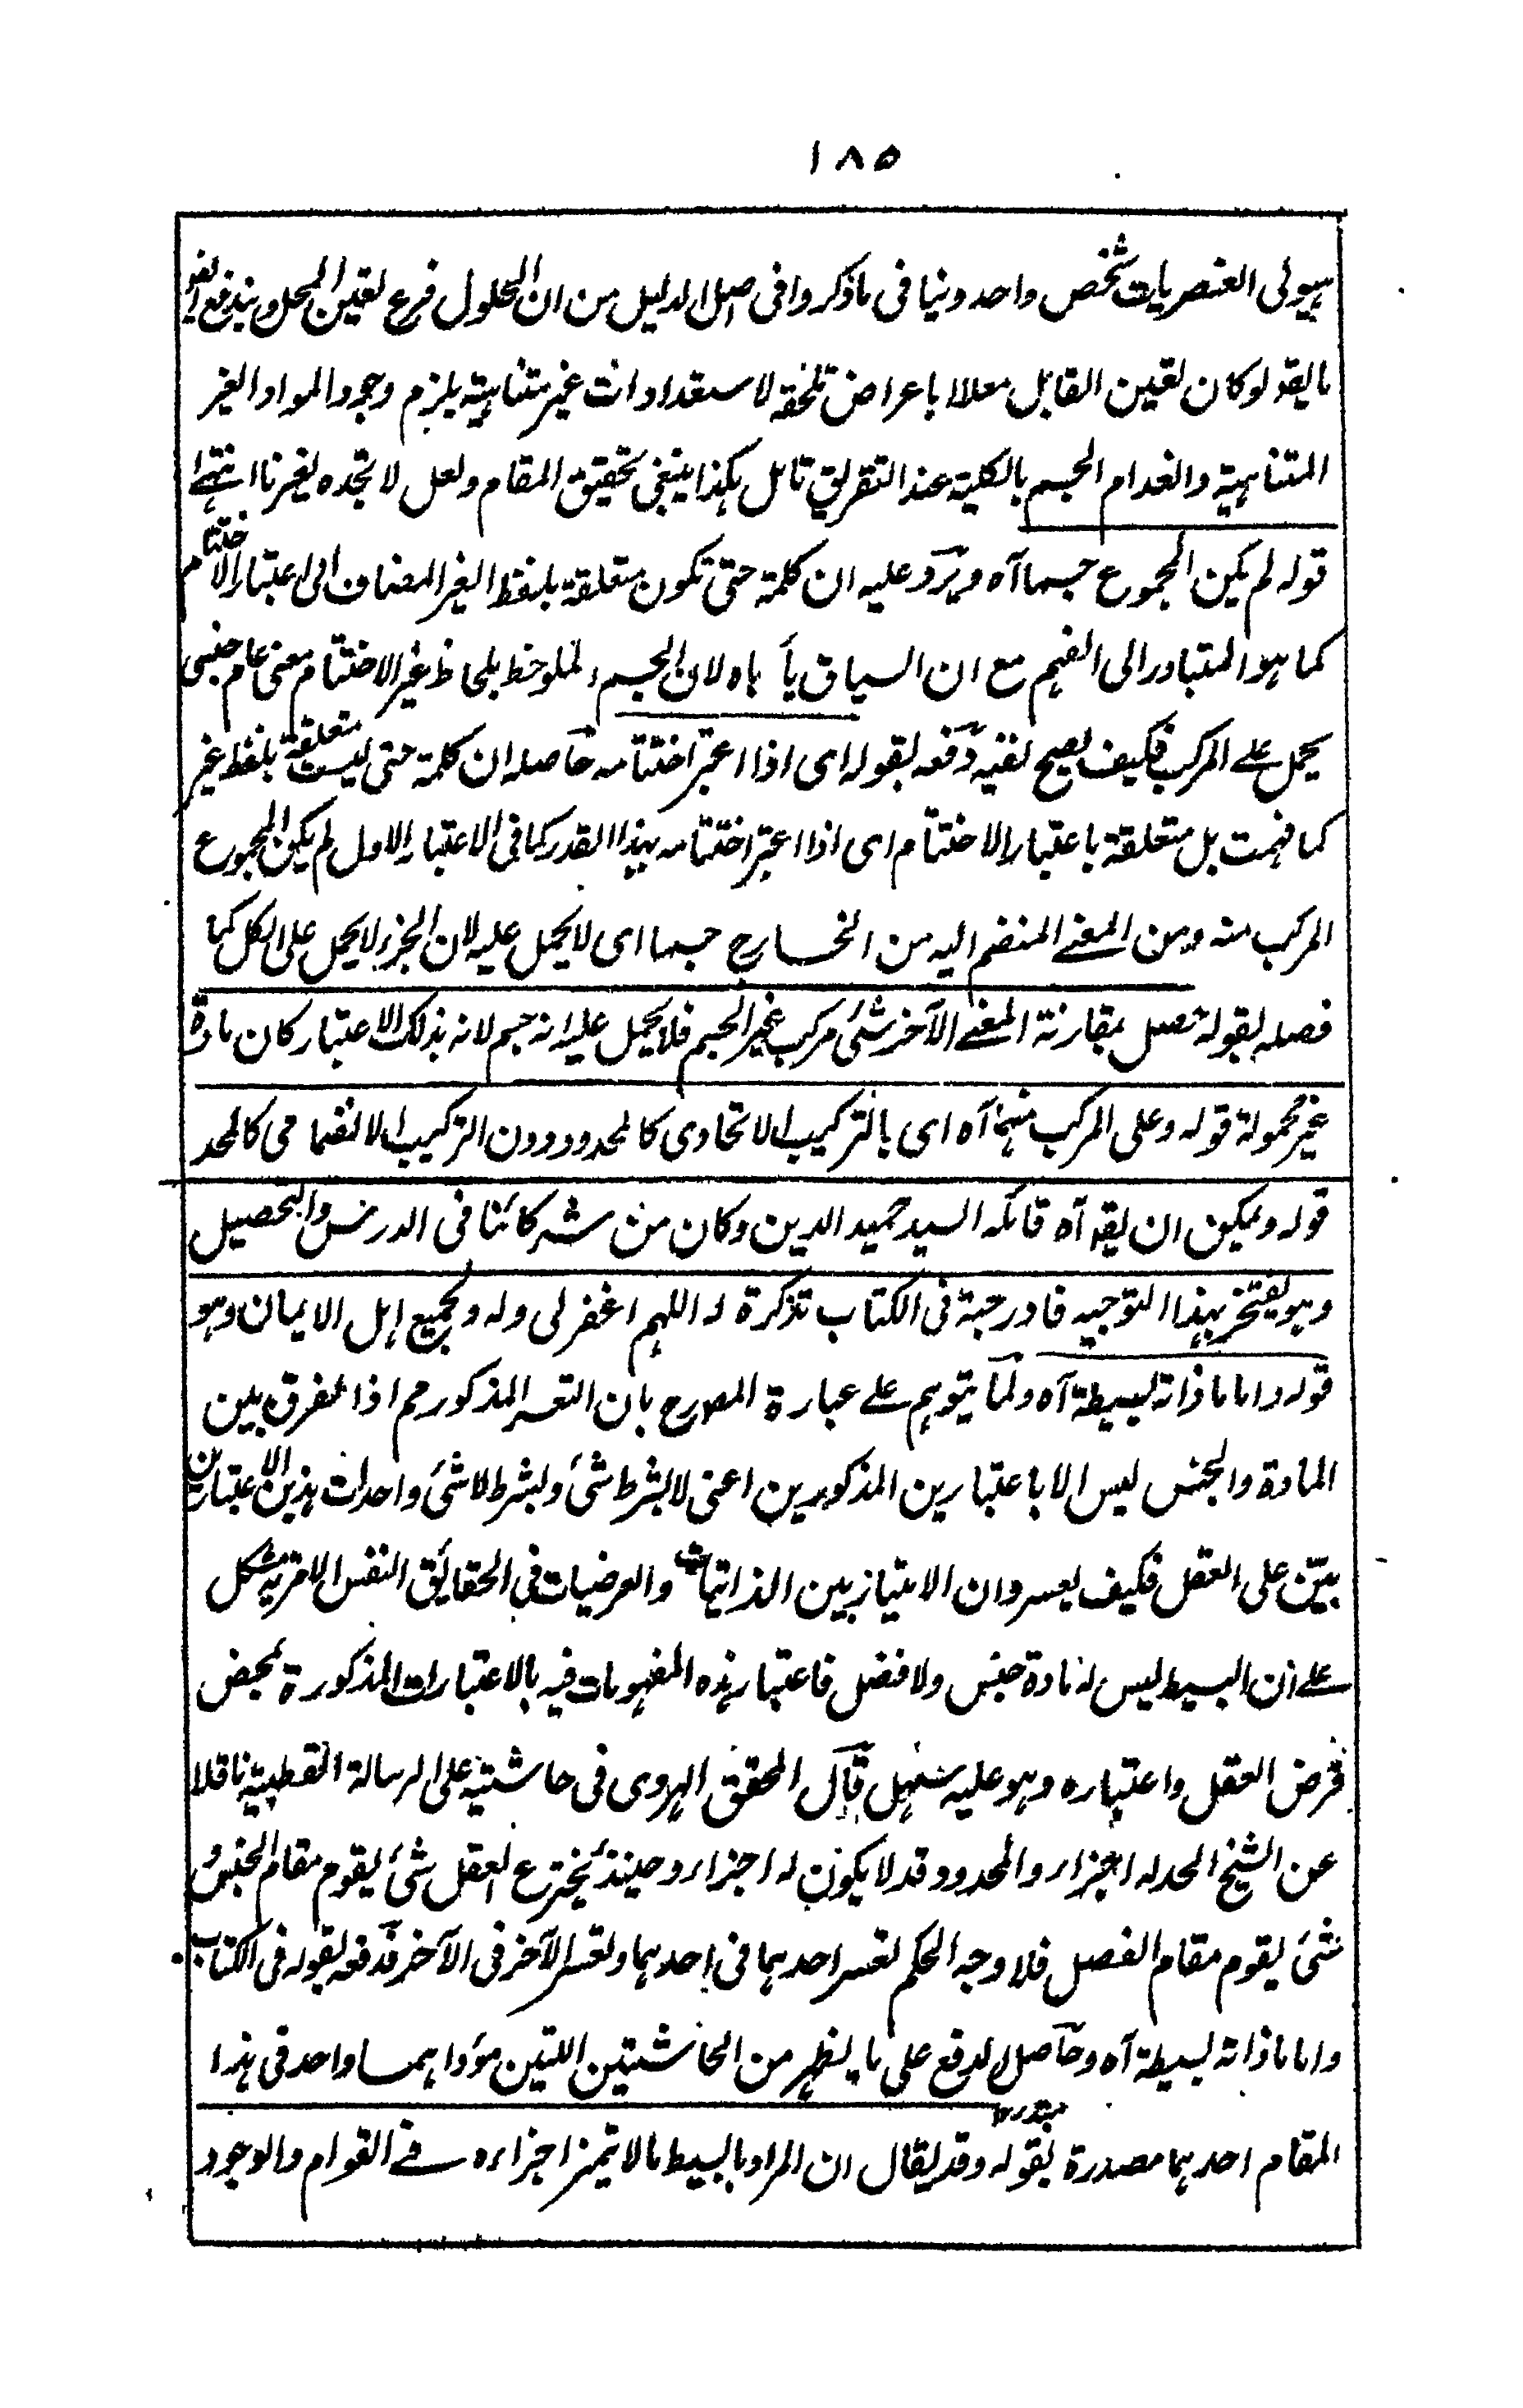 ١٨٥
هيولى العنصريات شخص واحد ونيا فى ما ذكروا فى اصل الدليل من ان الحلول فرع تعين المحل ويندفع ايضا
ما يقو لو كان تعين القابل معللا باعراض تلحقه لاستعدادات غير متناهية يلزم وجود المواد الغير
المتناهية وانعدام الجسم بالكلية عند التفريق تامل هكذا ينبغى تحقيق المقام ولعل لا تجده لغيرنا انتهى
قوله لم يكن المجموع جسما آه ويرد عليه ان كلمة حتى تكون متعلقة بلفظ الغير المضاف الى اعتبار الاختتام
كما هو المتبادر الى الفهم مع ان السياق يأباه لان الجسم الملوحظ بلحاظ غير الاختتام معنى عام جنسى
يحمل على المركب فكيف يصح نفيه دفعه بقوله اى اذا اعتبر اختتامه حاصله ان كلمة حتى ليست متعلقة بلفظ غير
كما فهمت بل متعلقة باعتبار الاختتام اى اذا اعتبر اختتامه بهذا القدر كما فى الاعتبار الاول لم يكن المجموع
المركب منه ومن المعنى المنضم اليه من الخارج جسما اى لا يحمل عليه لان الجزء لا يحمل على الكل كما
فصله بقوله تحصل بمقارنة المعنى الآخر شئ مركب غير الجسم فلا يحمل عليه انه جسم لانه بذلك الاعتبار كان مادة
غير محمولة قوله وعلى المركب منهما آه اى بالتركيب الاتحادى كالمحدود دون التركيب الانضمامى كالحد
قوله ويمكن ان يقه آه قائله السيد حميد الدين وكان من شركائنا فى الدرس والتحصيل
وهو يفتخر بهذا التوجيه فادرجته فى الكتاب تذكرة له اللهم اغفر لى وله ولجميع اهل الايمان وهو
قوله واما ما ذاته بسيطة آه ولما يتوهم على عبارة المصرح بان التعسر المذكور مم اذا لفرق بين
المادة والجنس ليس الا باعتبارين المذكورين اعنى لا بشرط شئ وبشرط لا شئ واحداث هذين الاعتبارين
بيّن على العقل فكيف يعسر وان الامتياز بين الذاتيات والعرضيات فى الحقايق النفس الامرية مشكل
على ان البسيط ليس له مادة جنس ولا فصل فاعتبار هذه المفهومات فيه بالاعتبارات المذكورة بمحض
فرض العقل واعتباره وهو عليه سهل قال المحقق الهروى فى حاشيته على الرسالة القطبية ناقلا
عن الشيخ الحد له اجزاء والمحدود قد لا يكون له اجزاء وحينئذ يخترع العقل شئ يقوم مقام الجنس و
شئ يقوم مقام الفصل فلا وجه الحكم لعسر احدهما فى احدهما وتعسر الآخر فى الآخر فدفعه بقوله فى الكتاب
واما ما ذاته بسيطة آه وحاصل الدفع على ما يظهر من الحاشيتين اللتين مؤداهما واحد فى هذا
المقام احدهما مصدرة بقوله وقد يقال ان المراد بالبسيط ما لا يتميز اجزاءه فى القوام والوجود